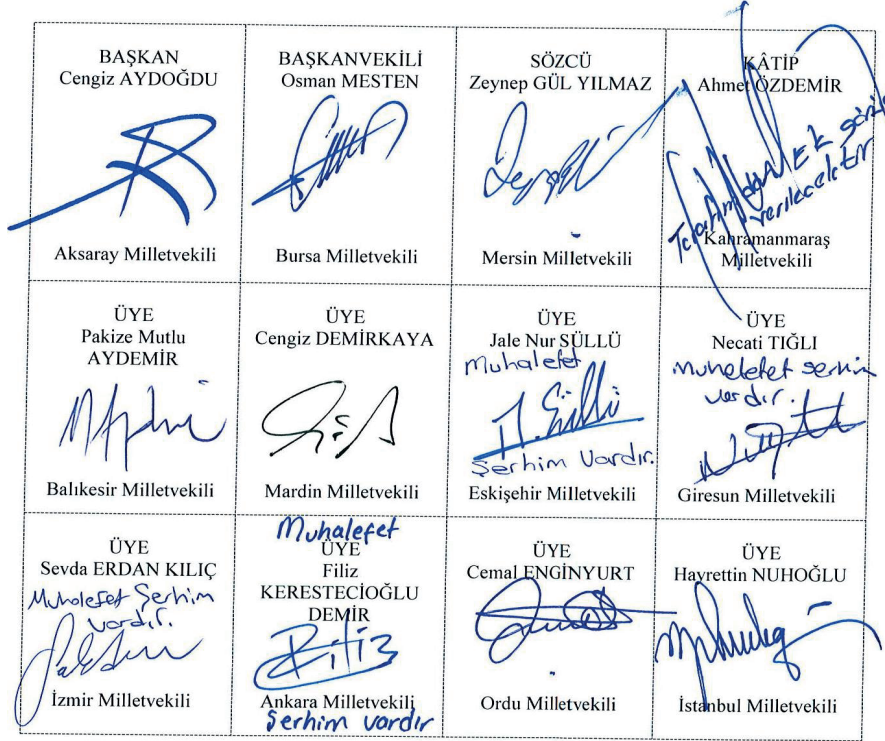 BAŞKAN
Cengiz AYDOĞDU
Aksaray Milletvekili
BAŞKANVEKİLİ
Osman MESTEN
Bursa Milletvekili
SÖZCÜ
Zeynep GÜL YILMAZ
Mersin Milletvekili
KÂTİP
Ahmet ÖZDEMİR
Tarafımdan EK görüş
verilecektir
Kahramanmaraş
Milletvekili
ÜYE
Pakize Mutlu
AYDEMİR
Balıkesir Milletvekili
ÜYE
Cengiz DEMİRKAYA
Mardin Milletvekili
ÜYE
Jale Nur SÜLLÜ
Muhalefet
J. Süllü
Şerhim Vardır.
Eskişehir Milletvekili
ÜYE
Necati TIĞLI
Muhalefet şerhim
vardır.
Giresun Milletvekili
ÜYE
Sevda ERDAN KILIÇ
Muhalefet Şerhim
vardır.
İzmir Milletvekili
Muhalefet
ÜYE
Filiz
KERESTECİOĞLU
DEMİR
Filiz
Ankara Milletvekili
Şerhim vardır
ÜYE
Cemal ENGİNYURT
Ordu Milletvekili
ÜYE
Hayrettin NUHOĞLU
İstanbul Milletvekili